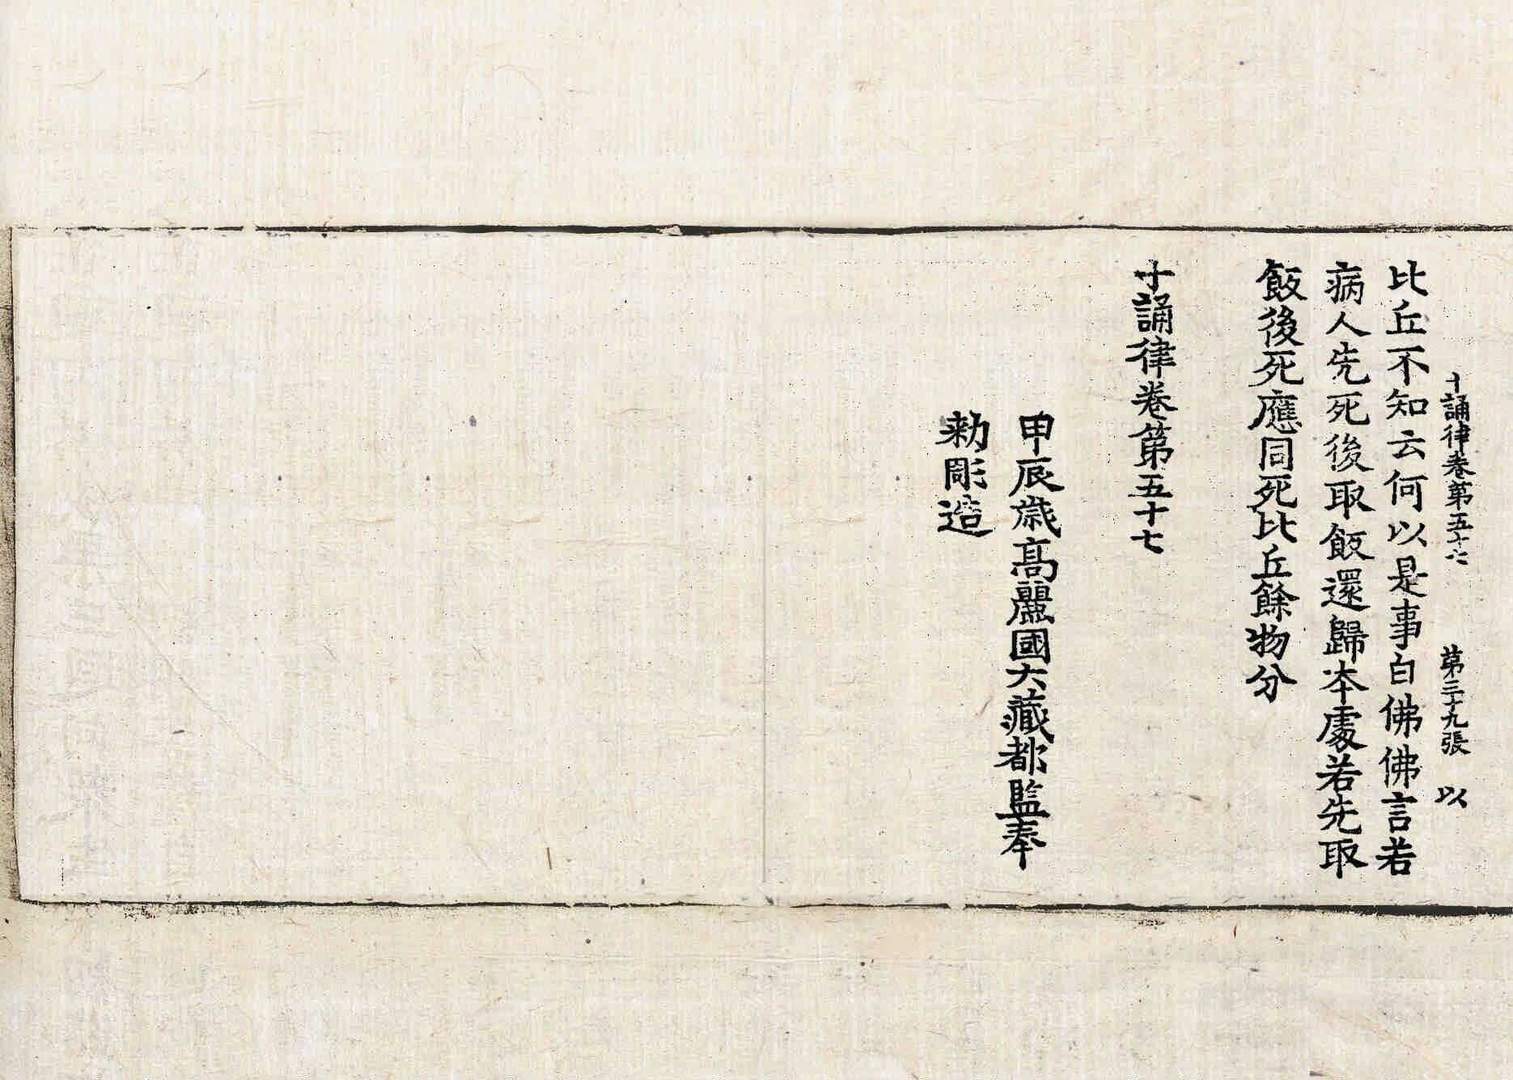 十誦律卷第五十七 第三十九張 以
比丘不知云何以是事白佛佛言若
病人先死後取飯還歸本處若先取
飯後死應同死比丘餘物分
十誦律卷第五十七
甲辰歲高麗國大藏都監奉
勑彫造